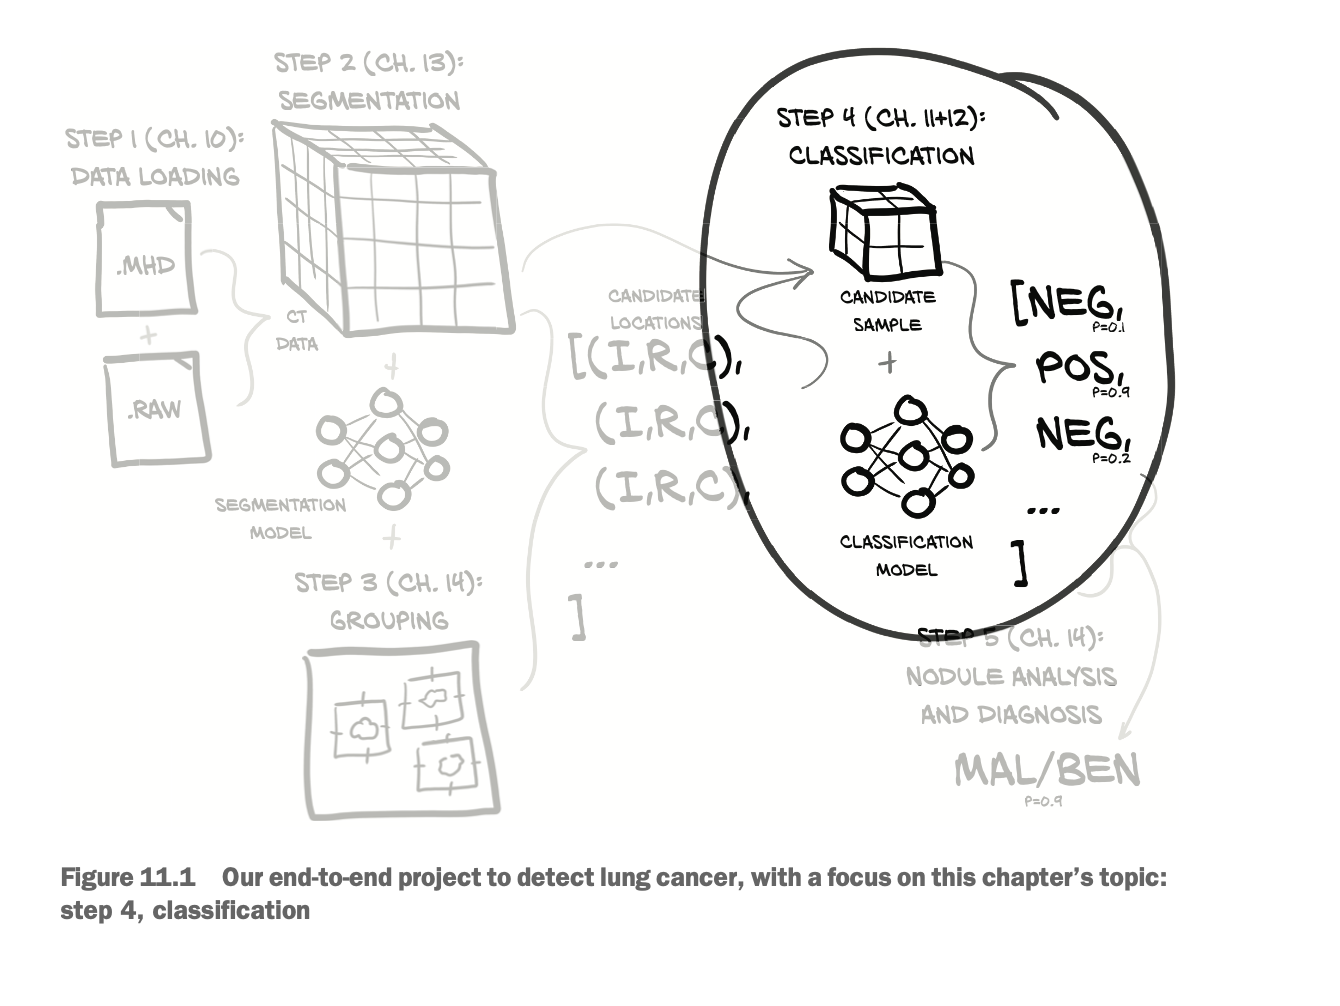 STEP 1 (CH. 10):
DATA LOADING
.MHD
+
.RAW
STEP 2 (CH. 13):
SEGMENTATION
CT
DATA
+
SEGMENTATION
MODEL
+
STEP 3 (CH. 14):
GROUPING
CANDIDATE
LOCATIONS
[(I,R,C),
(I,R,C),
(I,R,C),
...
]
STEP 4 (CH. 11+12):
CLASSIFICATION
CANDIDATE
SAMPLE
+
CLASSIFICATION
MODEL
[NEG,
P=0.1
POS,
P=0.9
NEG,
P=0.2
...
]
STEP 5 (CH. 14):
NODULE ANALYSIS
AND DIAGNOSIS
MAL/BEN
P=0.9
Figure 11.1 Our end-to-end project to detect lung cancer, with a focus on this chapter's topic:
step 4, classification